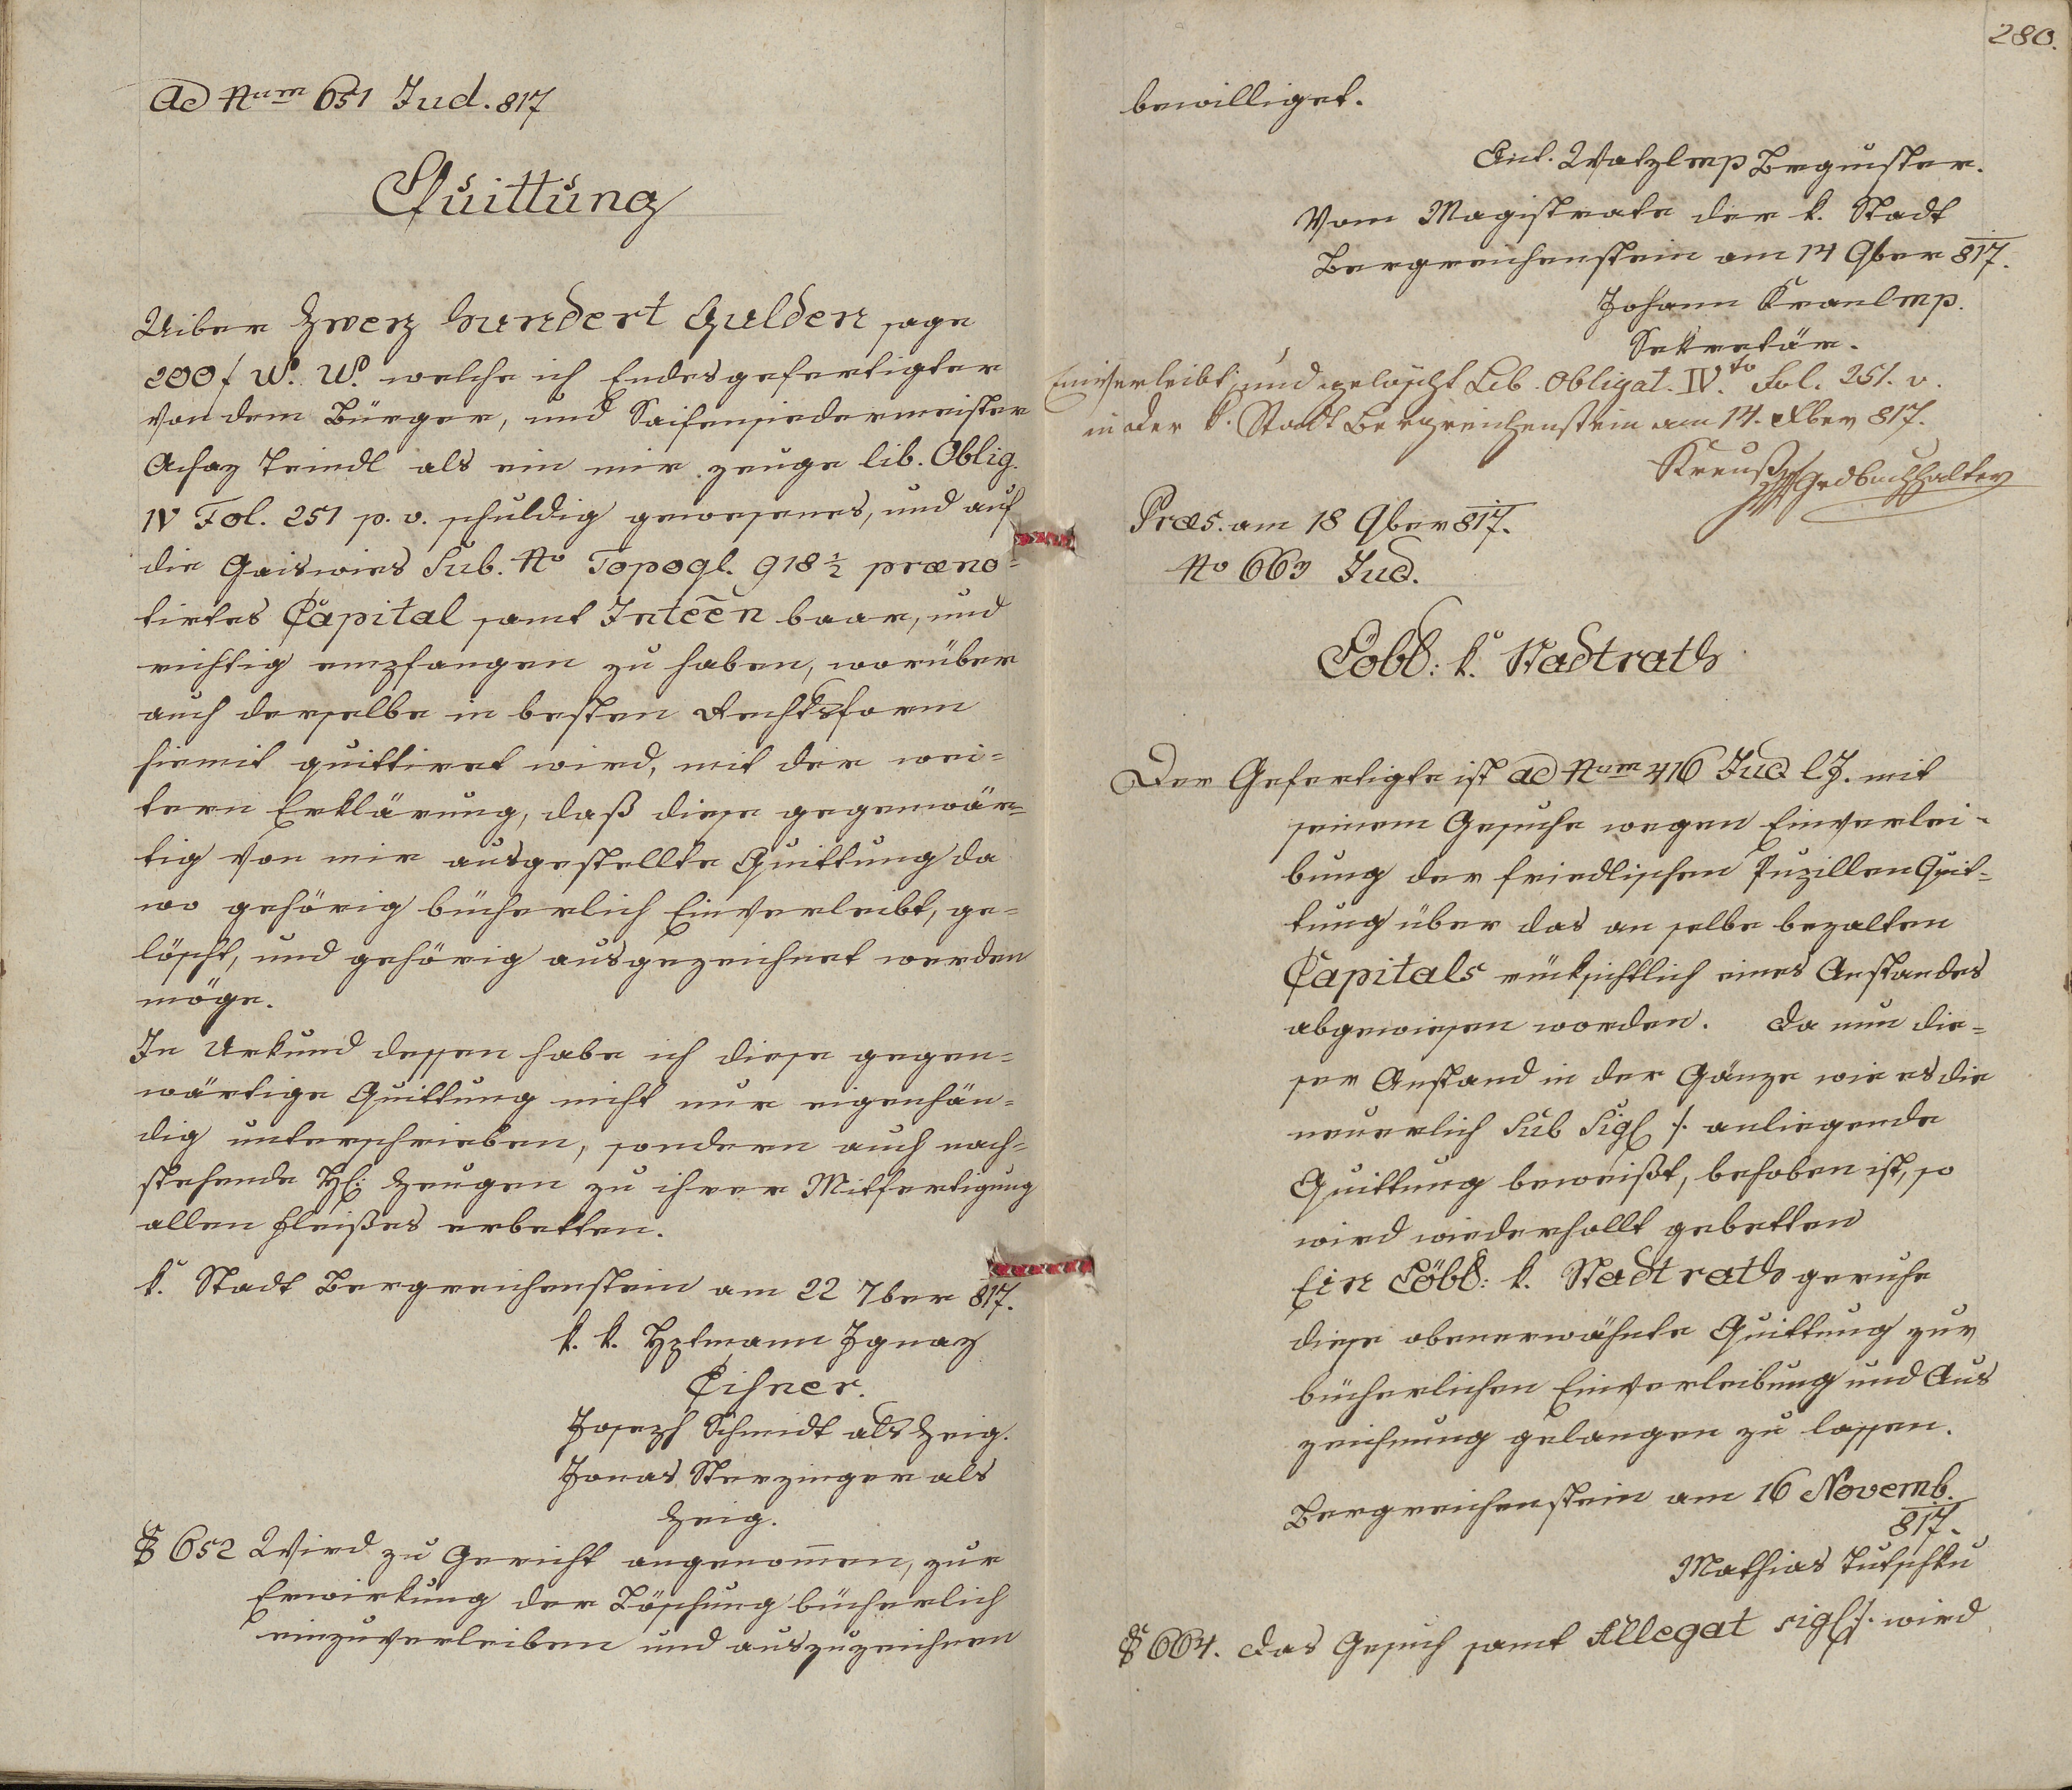 Ad Num 651 Jud. 817
Quittung
Uiber Zwey hundert Gulden sage
200 f W. W. welche ich Endesgefertigter
von dem Bürger, und Saifensiedermeister
Achaz Teindl als ein mir zeuge lib. Oblig.
IV Fol. 251 p. v. schuldig gewesenes, und auf
die Gaiswies Sub. No Topogl. 918 ½ præno=
tirtes Capital samt Inteēn baar, und
richtig empfangen zu haben, worüber
auch derselbe in besten Rechtsform
hiemit quittiret wird, mit der wei=
tern Erklärung, daß diese gegenwär=
tig von mir ausgestellte Quittung da
wo gehörig bücherlich Einverleibt, ge=
löscht, und gehörig ausgezeichnet werden
möge.
In Urkund dessen habe ich diese gegen=
wärtige Quittung nicht nur eigenhän=
dig unterschrieben, sondern auch nach=
stehende H: Zeugen zu ihrer Mitfertigung
allen Fleißes erbetten.
k. Stadt Bergreichenstein am 22 7ber 817.
k. k. Hptmann Ignaz
Joseph Schmidt als Zeig.
Jonas Sterzinger als
Zeig.
§ 652 Wird zu Gericht angenom̄en, zur
Erwirkung der Löschung bücherlich
einzuverleiben und auszuzeichnen
280.
bewilliget.
Ant. Watzl mp Brgmster.
Vom Magistrate der k. Stadt
Bergreichenstein am 14 9ber 817.
Johann Kranl mp.
Sekretär.
Einverleibt, und gelöscht Lib. Obligat. IV.to Fol. 251. v.
in der k. Stadt Bergreichenstein am 14. 9ber 817.
Kreuß mp Grdbuchhalter
Præs. am 18 9ber 817.
No 663 Jud.
Löbl: k. Stadtrath
Der Gefertigte ist ad Num 416 Jud l J. mit
seinem Gesuche wegen Einverlei=
bung der Friedlischen Pupillen Quit=
tung über das an selbe bezalten
Capitals rüksichtlich eines Anstandes
abgewiesen worden. Da nun die=
ser Anstand in der Gänze wie es die
neuerlich Sub Sigl ⁒ anliegende
Quittung beweißt, behoben ist, so
wird wiederhollt gebetten
Ein Löbl: k. Stadtrath geruhe
diese obenerwähnte Quittung zur
bücherlichen Einverleibung und Aus
zeichnung gelangen zu lassen.
Bergreichenstein am 16 Novemb.
817.
Mathias Tutschku
§ 664. Das Gesuch samt Allegat sigl ⁒ wird